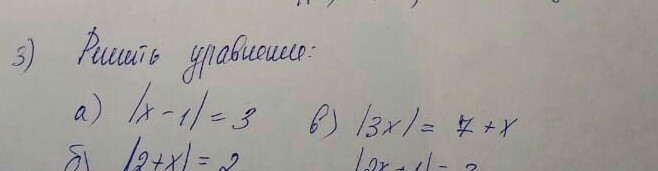 3) Решить уравнение:
а) |x - 1| = 3
в) |3x| = 7 + x
б) |2 + x| = 2